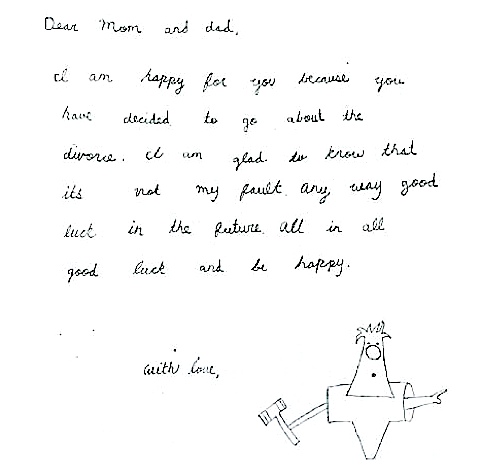 Dear Mom and dad,
I am happy for you because you
have decided to go about the
divorce. I am glad to know that
its not my fault. Any way good
luck in the future. All in all
good luck and be happy.
with love,